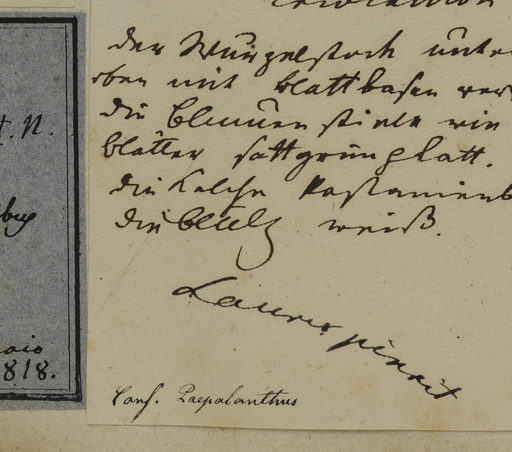 der Wurzelstock unte
oben mit Blattbasen ver
die Blumenstiele wie
blätter sattgrün glatt.
die Kelche Kastanienb
die weiß.
pinxit
Conf. Paepalanthus
t. N.
818.